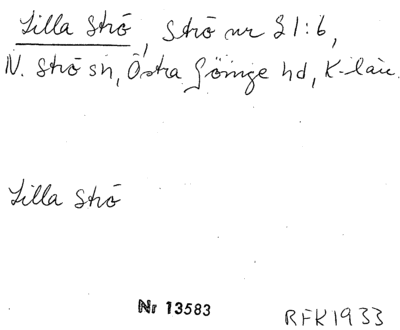 Lilla Strö, Strö nr 21:6,
N. Strö sn, Östra Göinge hd, K-län.
Lilla Strö
Nr 13583
RFK1933